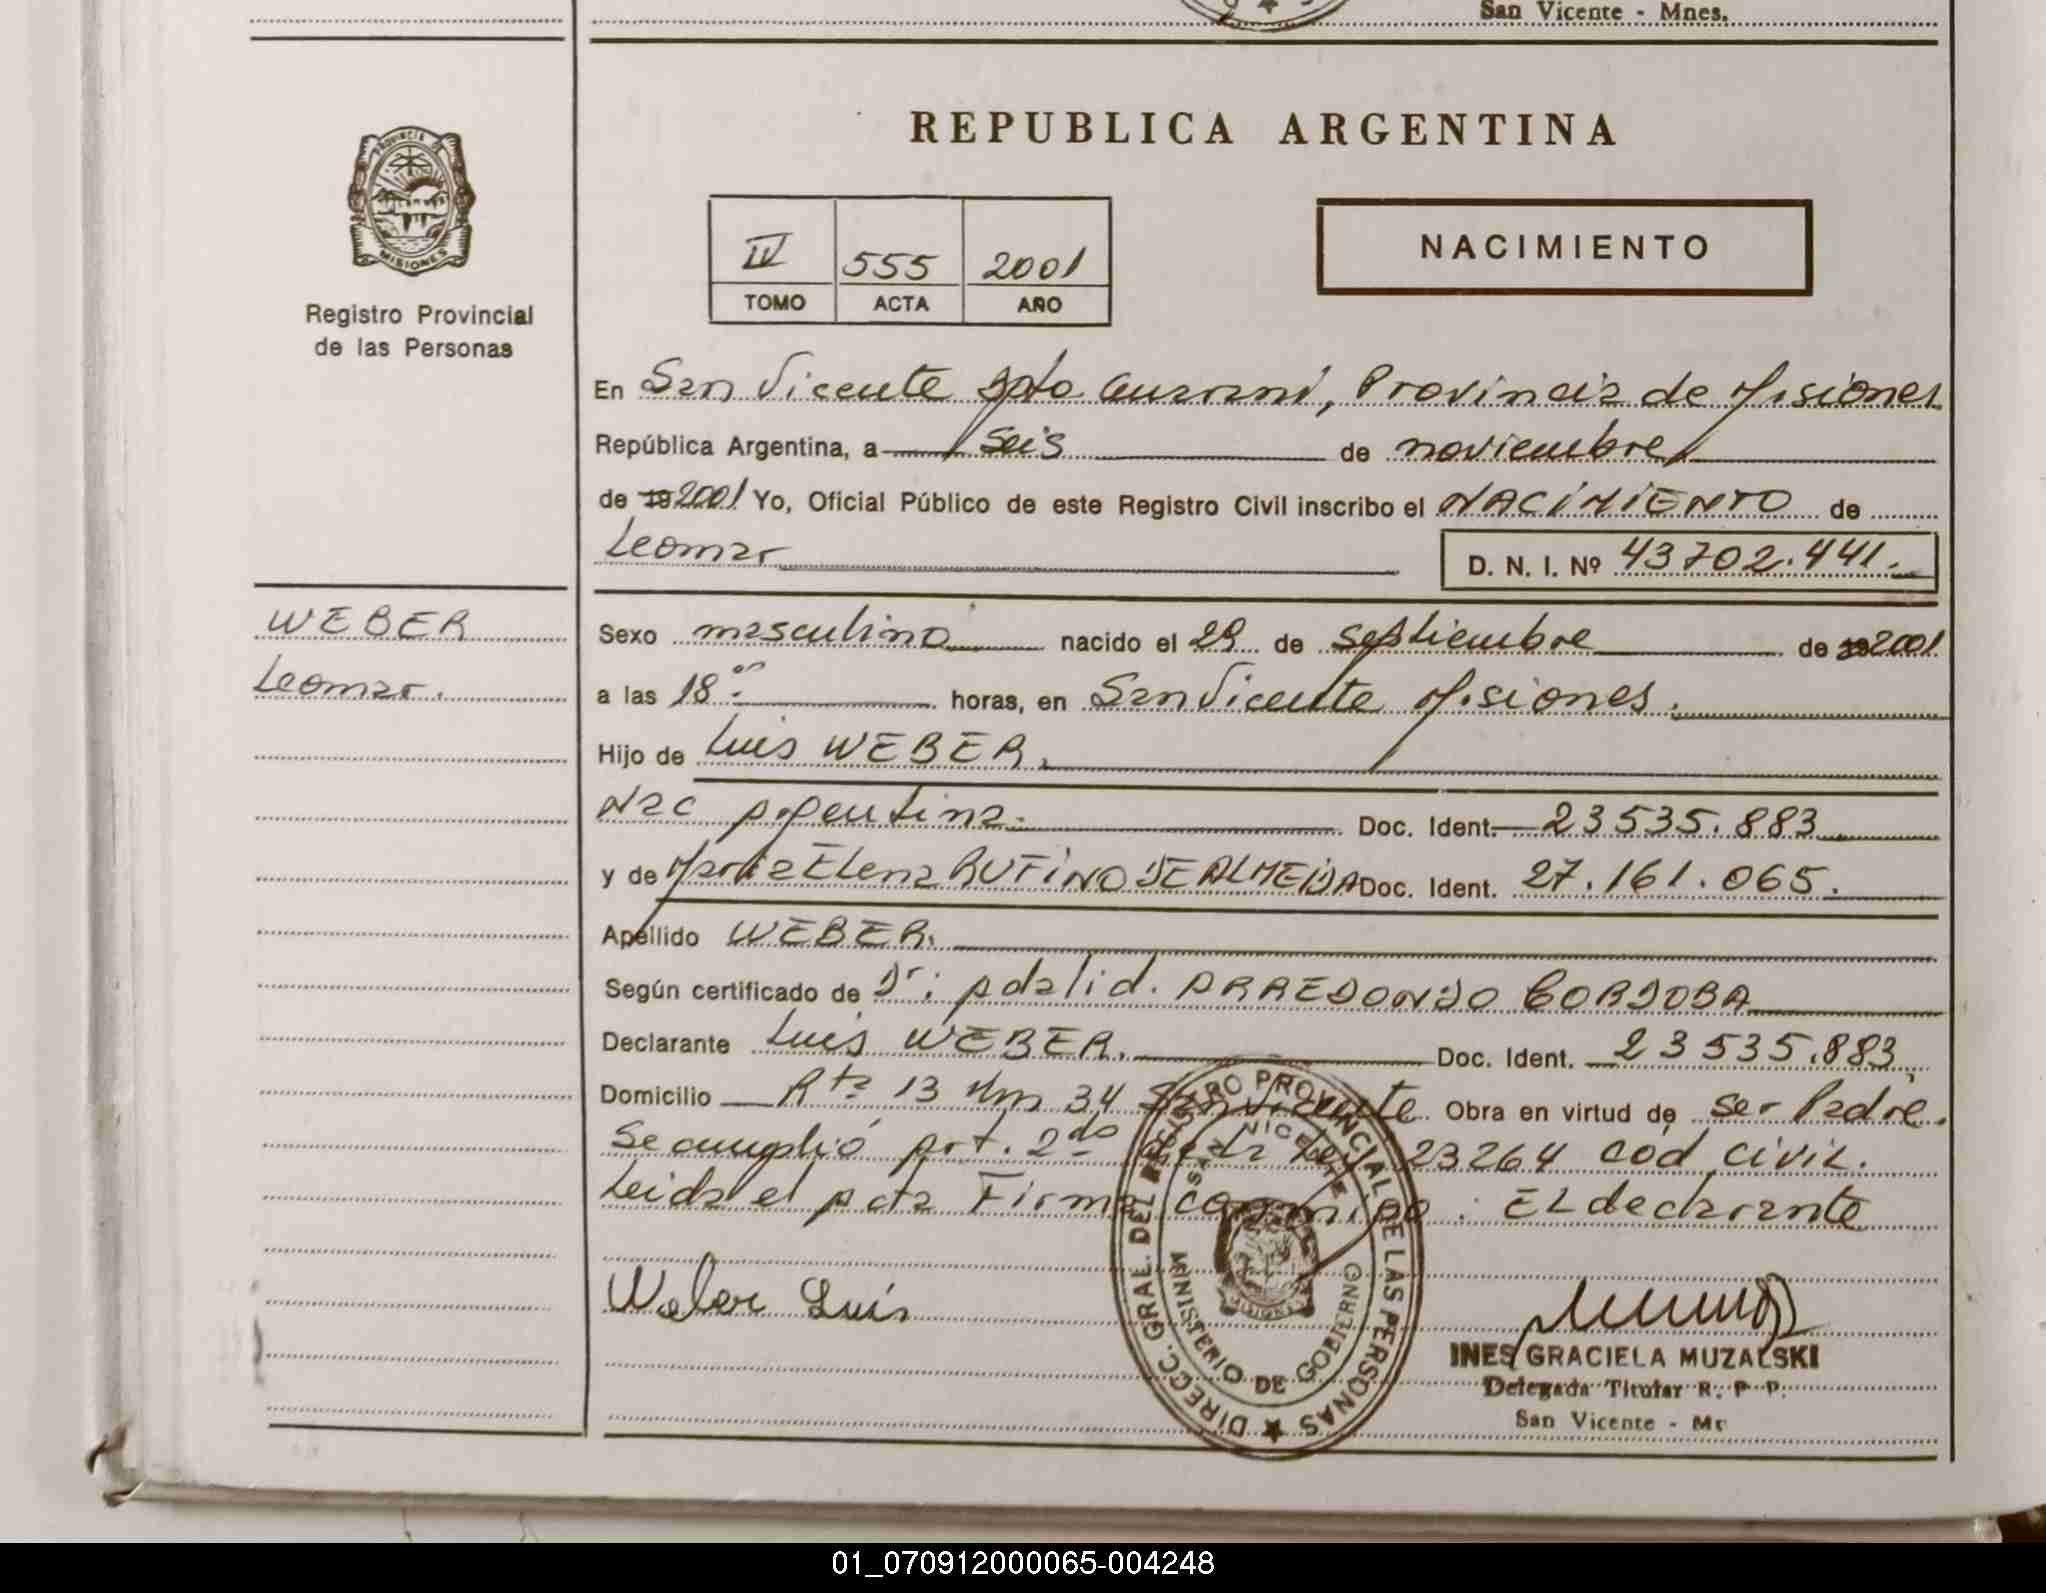 San Vicente - Mnes.
PROVINCIA DE
MISIONES
Registro Provincial
de las Personas
REPUBLICA ARGENTINA
IV 555 2001
TOMO ACTA AÑO
NACIMIENTO
En San Vicente Dpto Guaraní, Provincia de Misiones
República Argentina, a seis de noviembre
de 19 2001 Yo, Oficial Público de este Registro Civil inscribo el NACIMIENTO de
Leomar D. N. I. Nº 43702.441.
WEBER
Leomar.
Sexo masculino nacido el 29 de septiembre de 19 2001
a las 18 horas, en San Vicente Misiones.
Hijo de Luis WEBER.
Nac Argentina. Doc. Ident. 23535.883
y de Maria Elena RUFINO DE ALMEIDA Doc. Ident. 27.161.065.
Apellido WEBER.
Según certificado de Dr: Adalid. ARREDONDO CORDOBA
Declarante Luis WEBER. Doc. Ident. 23535.883
Domicilio Rta 13 Km 34 San Vicente Obra en virtud de ser Padre.
Se cumplió Art. 2do de la Ley 23264 cód civil.
Leida el Acta Firma conmigo. EL declarante
Weber Luis
DIRECC. GRAL. DEL REGISTRO PROVINCIAL DE LAS PERSONAS
SAN VICENTE
MINISTERIO DE GOBIERNO
INES GRACIELA MUZALSKI
Delegada Titular R. P. P.
San Vicente - Mr
01_070912000065-004248